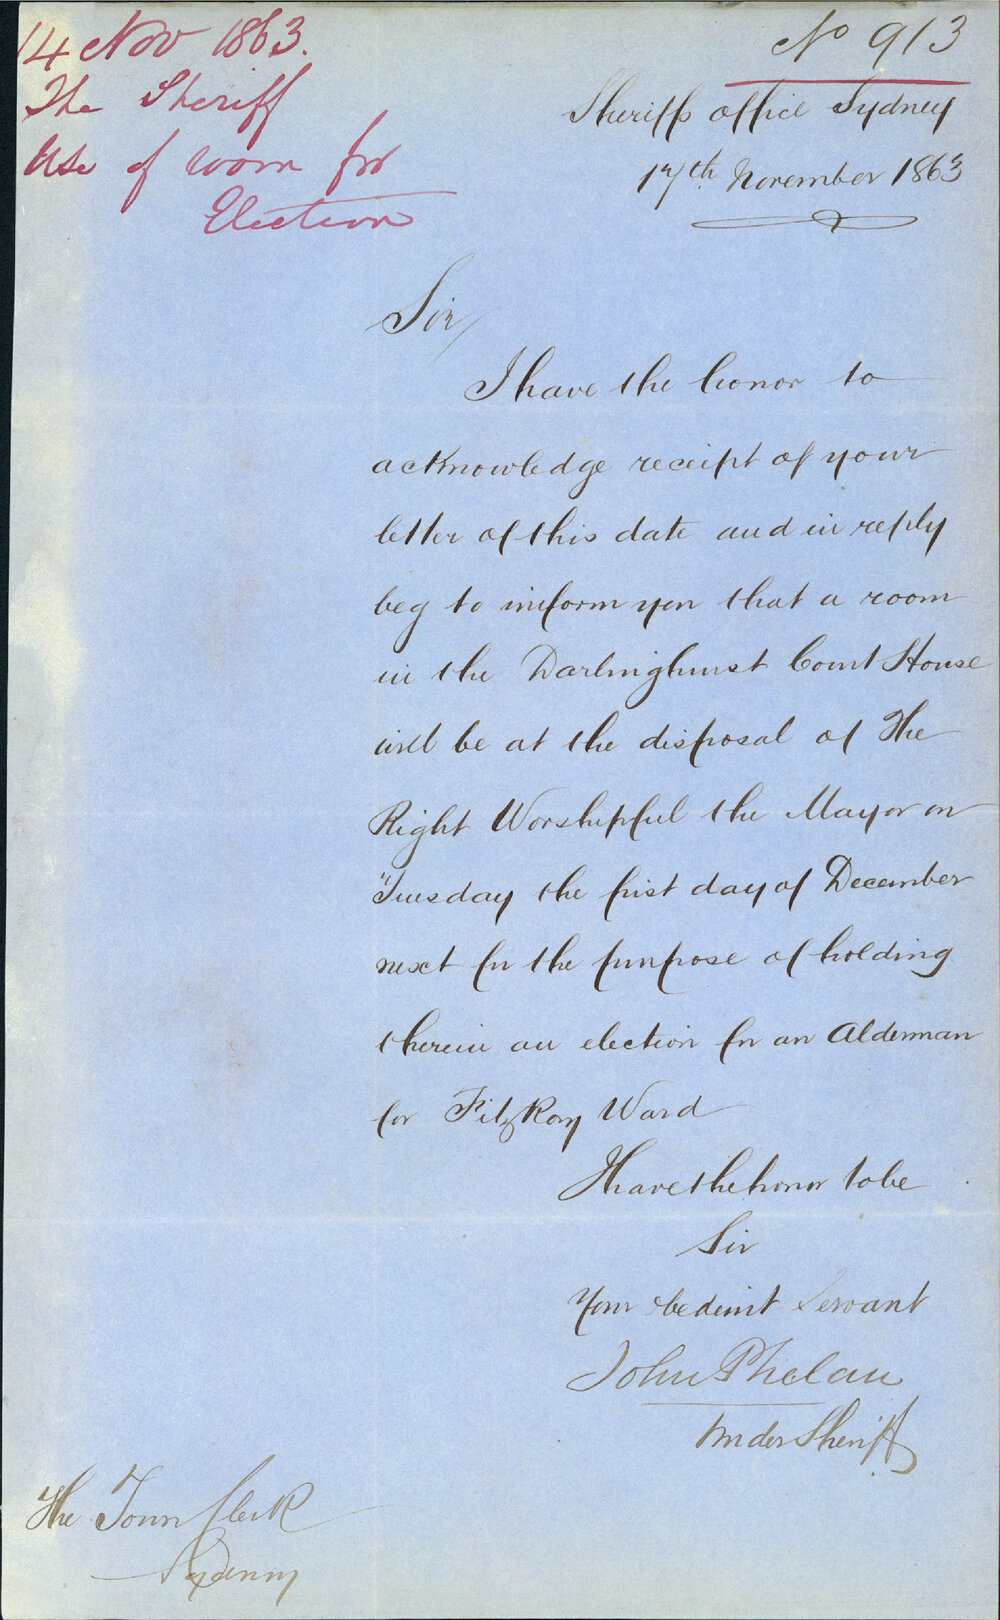 14 Nov 1863.
The Sheriff
Use of room for
Election
No 913
Sheriffs office Sydney
17th November 1863
Sir,
I have the honor to
acknowledge receipt of your
letter of this date and in reply
beg to inform you that a room
in the Darlinghurst Court House
will be at the disposal of The
Right Worshipful the Mayor on
Tuesday the first day of December
next for the purpose of holding
therein an election for an Alderman
for FitzRoy Ward
I have the honor to be
Sir
Your obedient Servant
John Phelan
Under Sheriff
The Town Clerk
Sydney